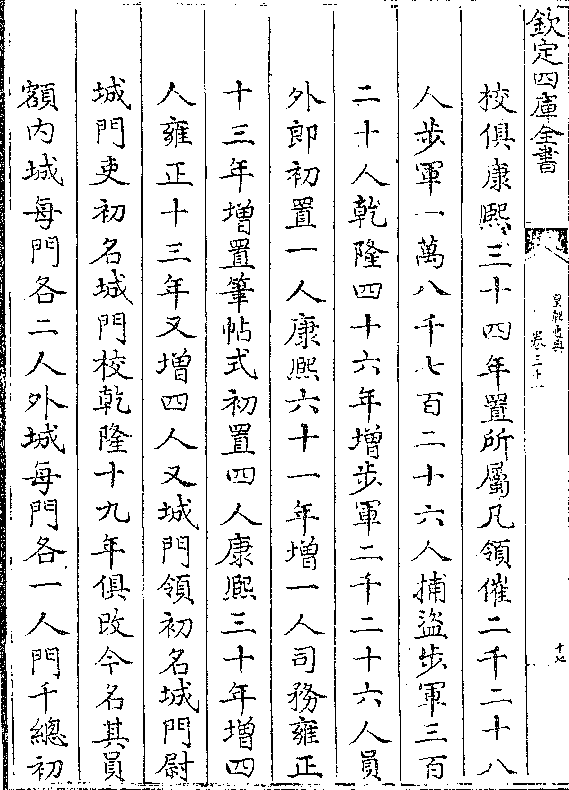 欽定四庫全書
皇朝通典
卷三十一
十七
校俱康熙三十四年置所屬凡領催二千二十八
人步軍一萬八千七百二十六人捕盜步軍三百
二十人乾隆四十六年增步軍二千二十六人員
外郎初置一人康熙六十一年增一人司務雍正
十三年增置筆帖式初置四人康熙三十年增四
人雍正十三年又增四人又城門領初名城門尉
城門吏初名城門校乾隆十九年俱改今名其員
額內城每門各二人外城每門各一人門千總初